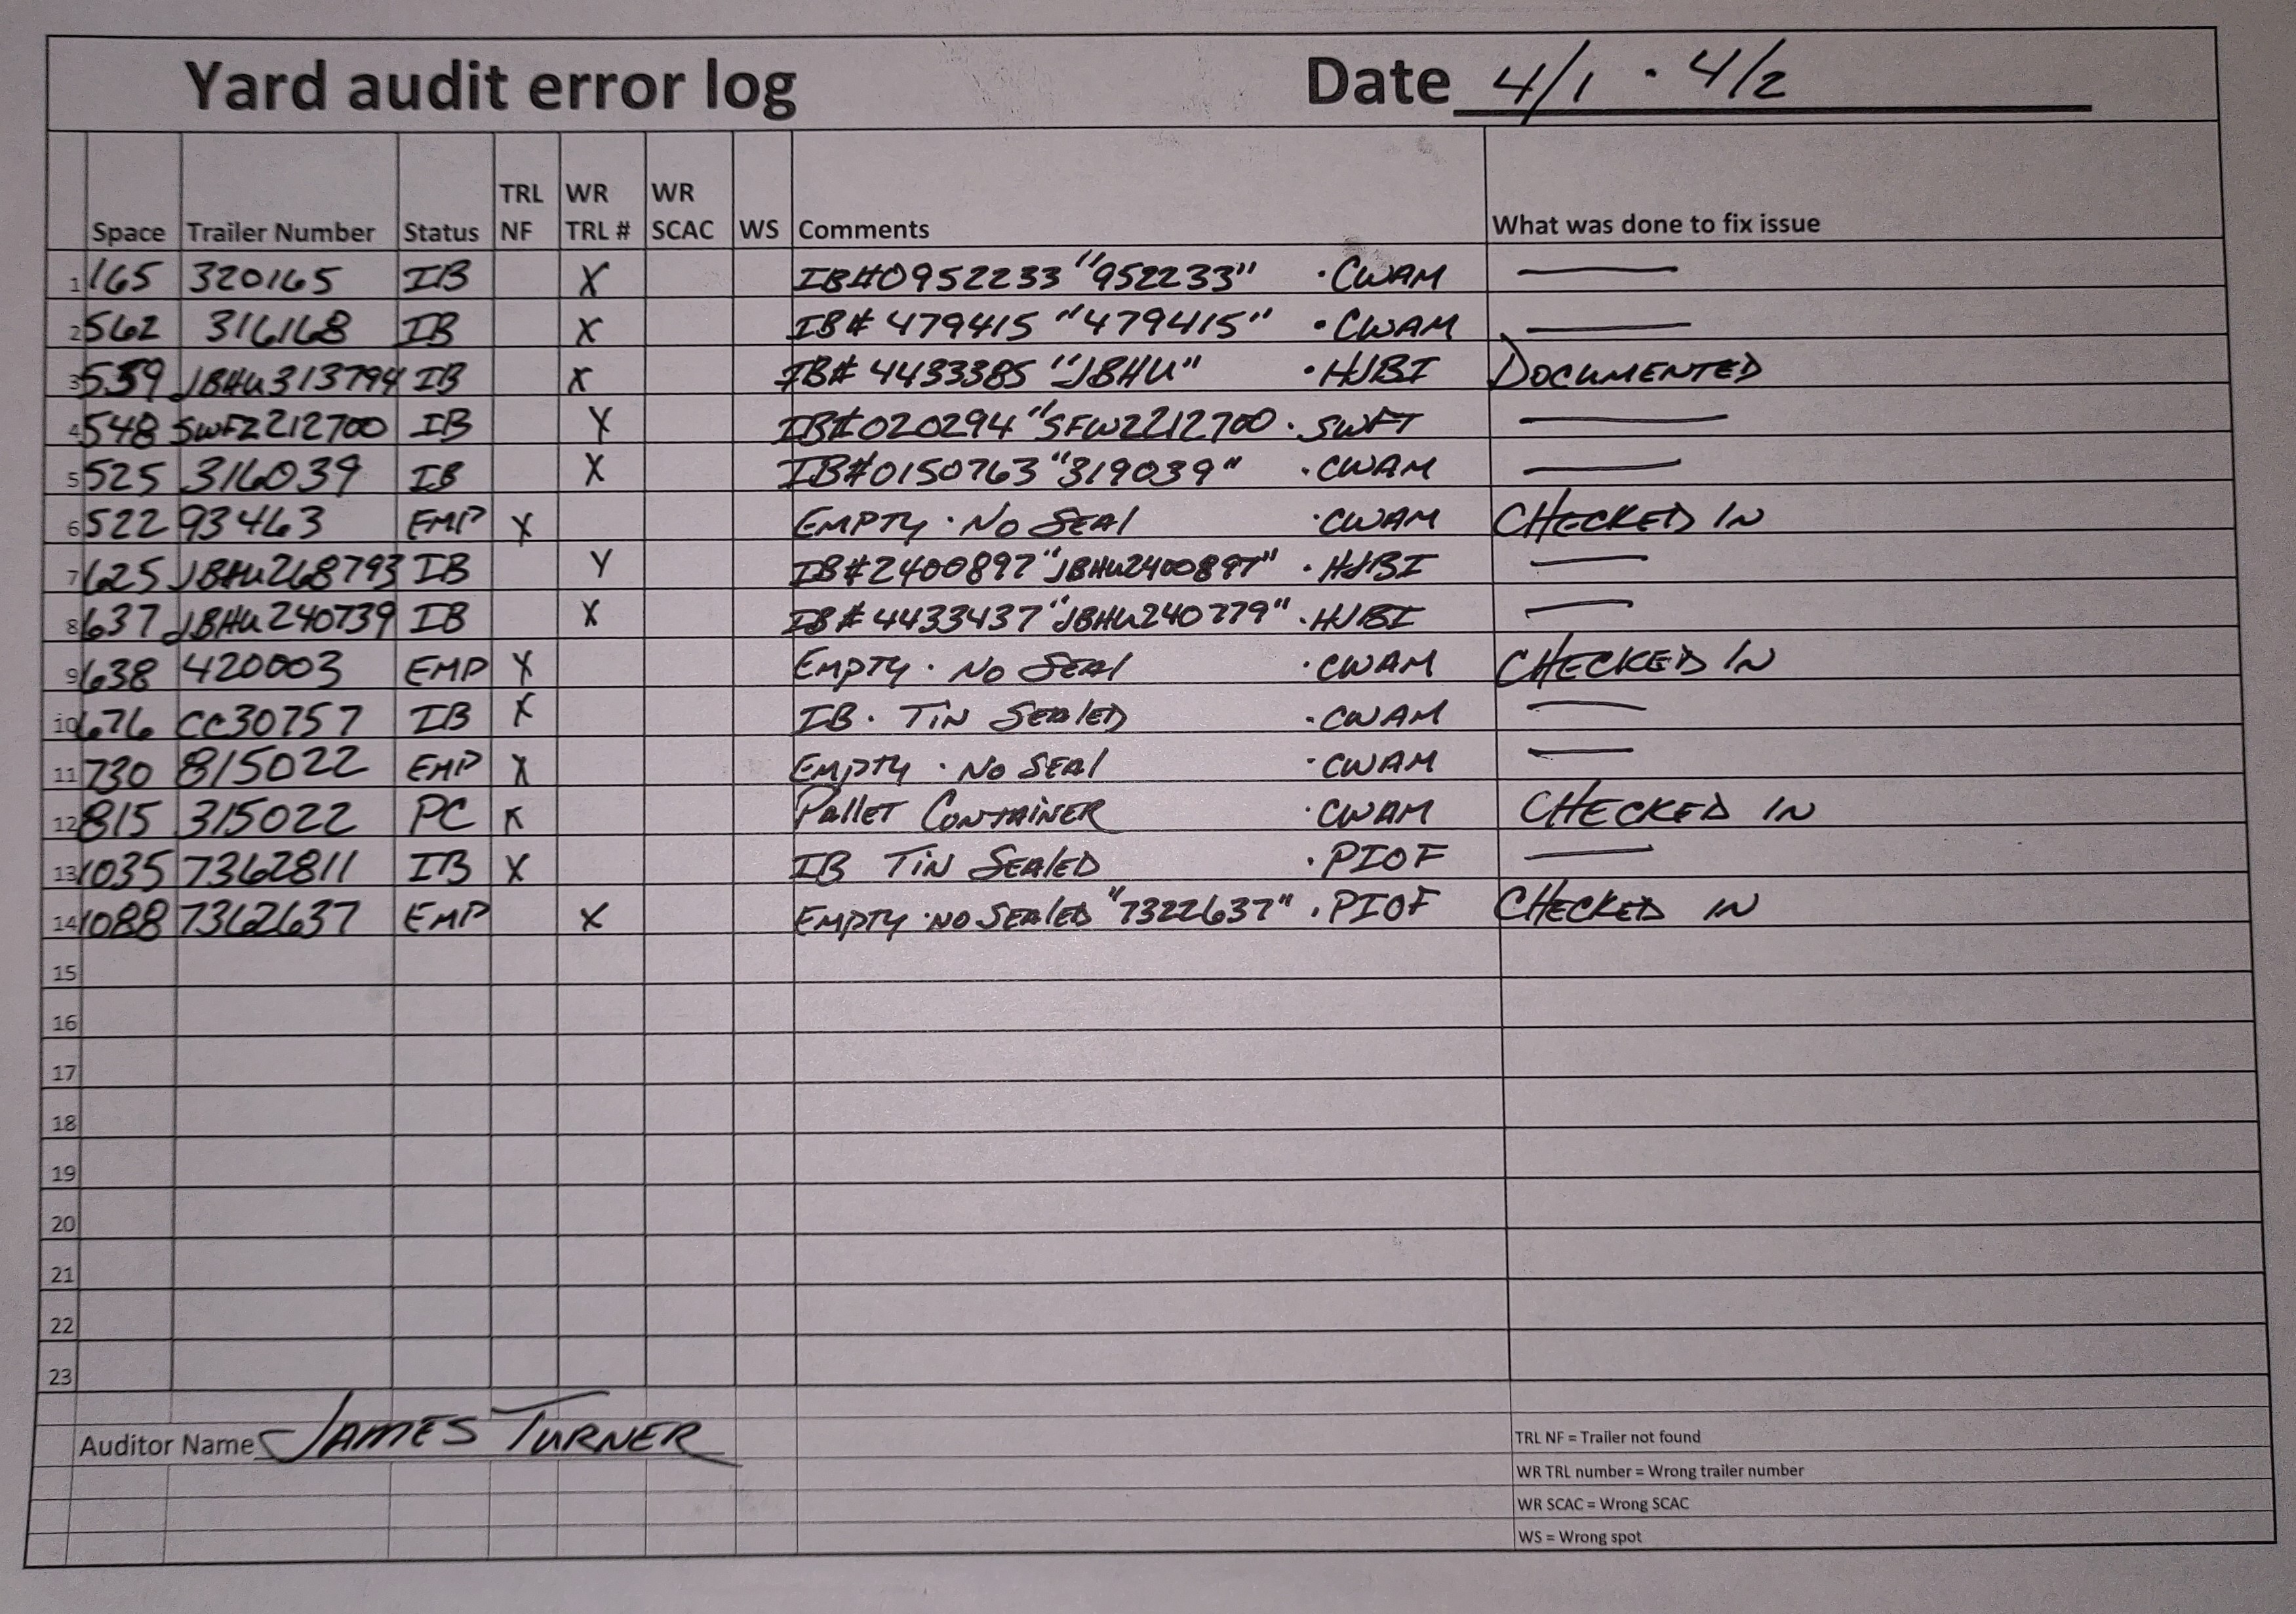 Yard audit error log Date 4/1 · 4/2
Space Trailer Number Status TRL NF WR TRL # WR SCAC WS Comments What was done to fix issue
1 165 320165 IB X IB#0952233 "952233" ·CWAM —
2 562 316168 IB X IB# 479415 "479415" ·CWAM —
3 559 JBHU313794 IB X IB# 4433385 "JBHU" ·HJBI DOCUMENTED
4 548 SWFZ212700 IB X IB#020294 "SFWZ212700 · SWFT —
5 525 316039 IB X IB#0150763 "319039" ·CWAM —
6 522 93463 EMP X EMPTY · No SEAl ·CWAM CHECKED IN
7 625 JBHU268793 IB X IB#2400897 "JBHU2400897" ·HJBI —
8 637 JBHU240739 IB X IB# 4433437 "JBHU240779" ·HJBI —
9 638 420003 EMP X Empty · No SEAl ·CWAM CHECKED IN
10 676 CC30757 IB X IB · TiN SEAlED ·CWAM —
11 730 815022 EMP X Empty · No SEAl ·CWAM —
12 815 315022 PC X PAllET CONTAiNER ·CWAM CHECKED IN
13 1035 7362811 IB X IB TiN SEAlED ·PIOF —
14 1088 7362637 EMP X Empty ·NO SEAlED "7322637" ·PIOF CHECKED IN
15
16
17
18
19
20
21
22
23
Auditor Name JAMES TURNER
TRL NF = Trailer not found
WR TRL number = Wrong trailer number
WR SCAC = Wrong SCAC
WS = Wrong spot